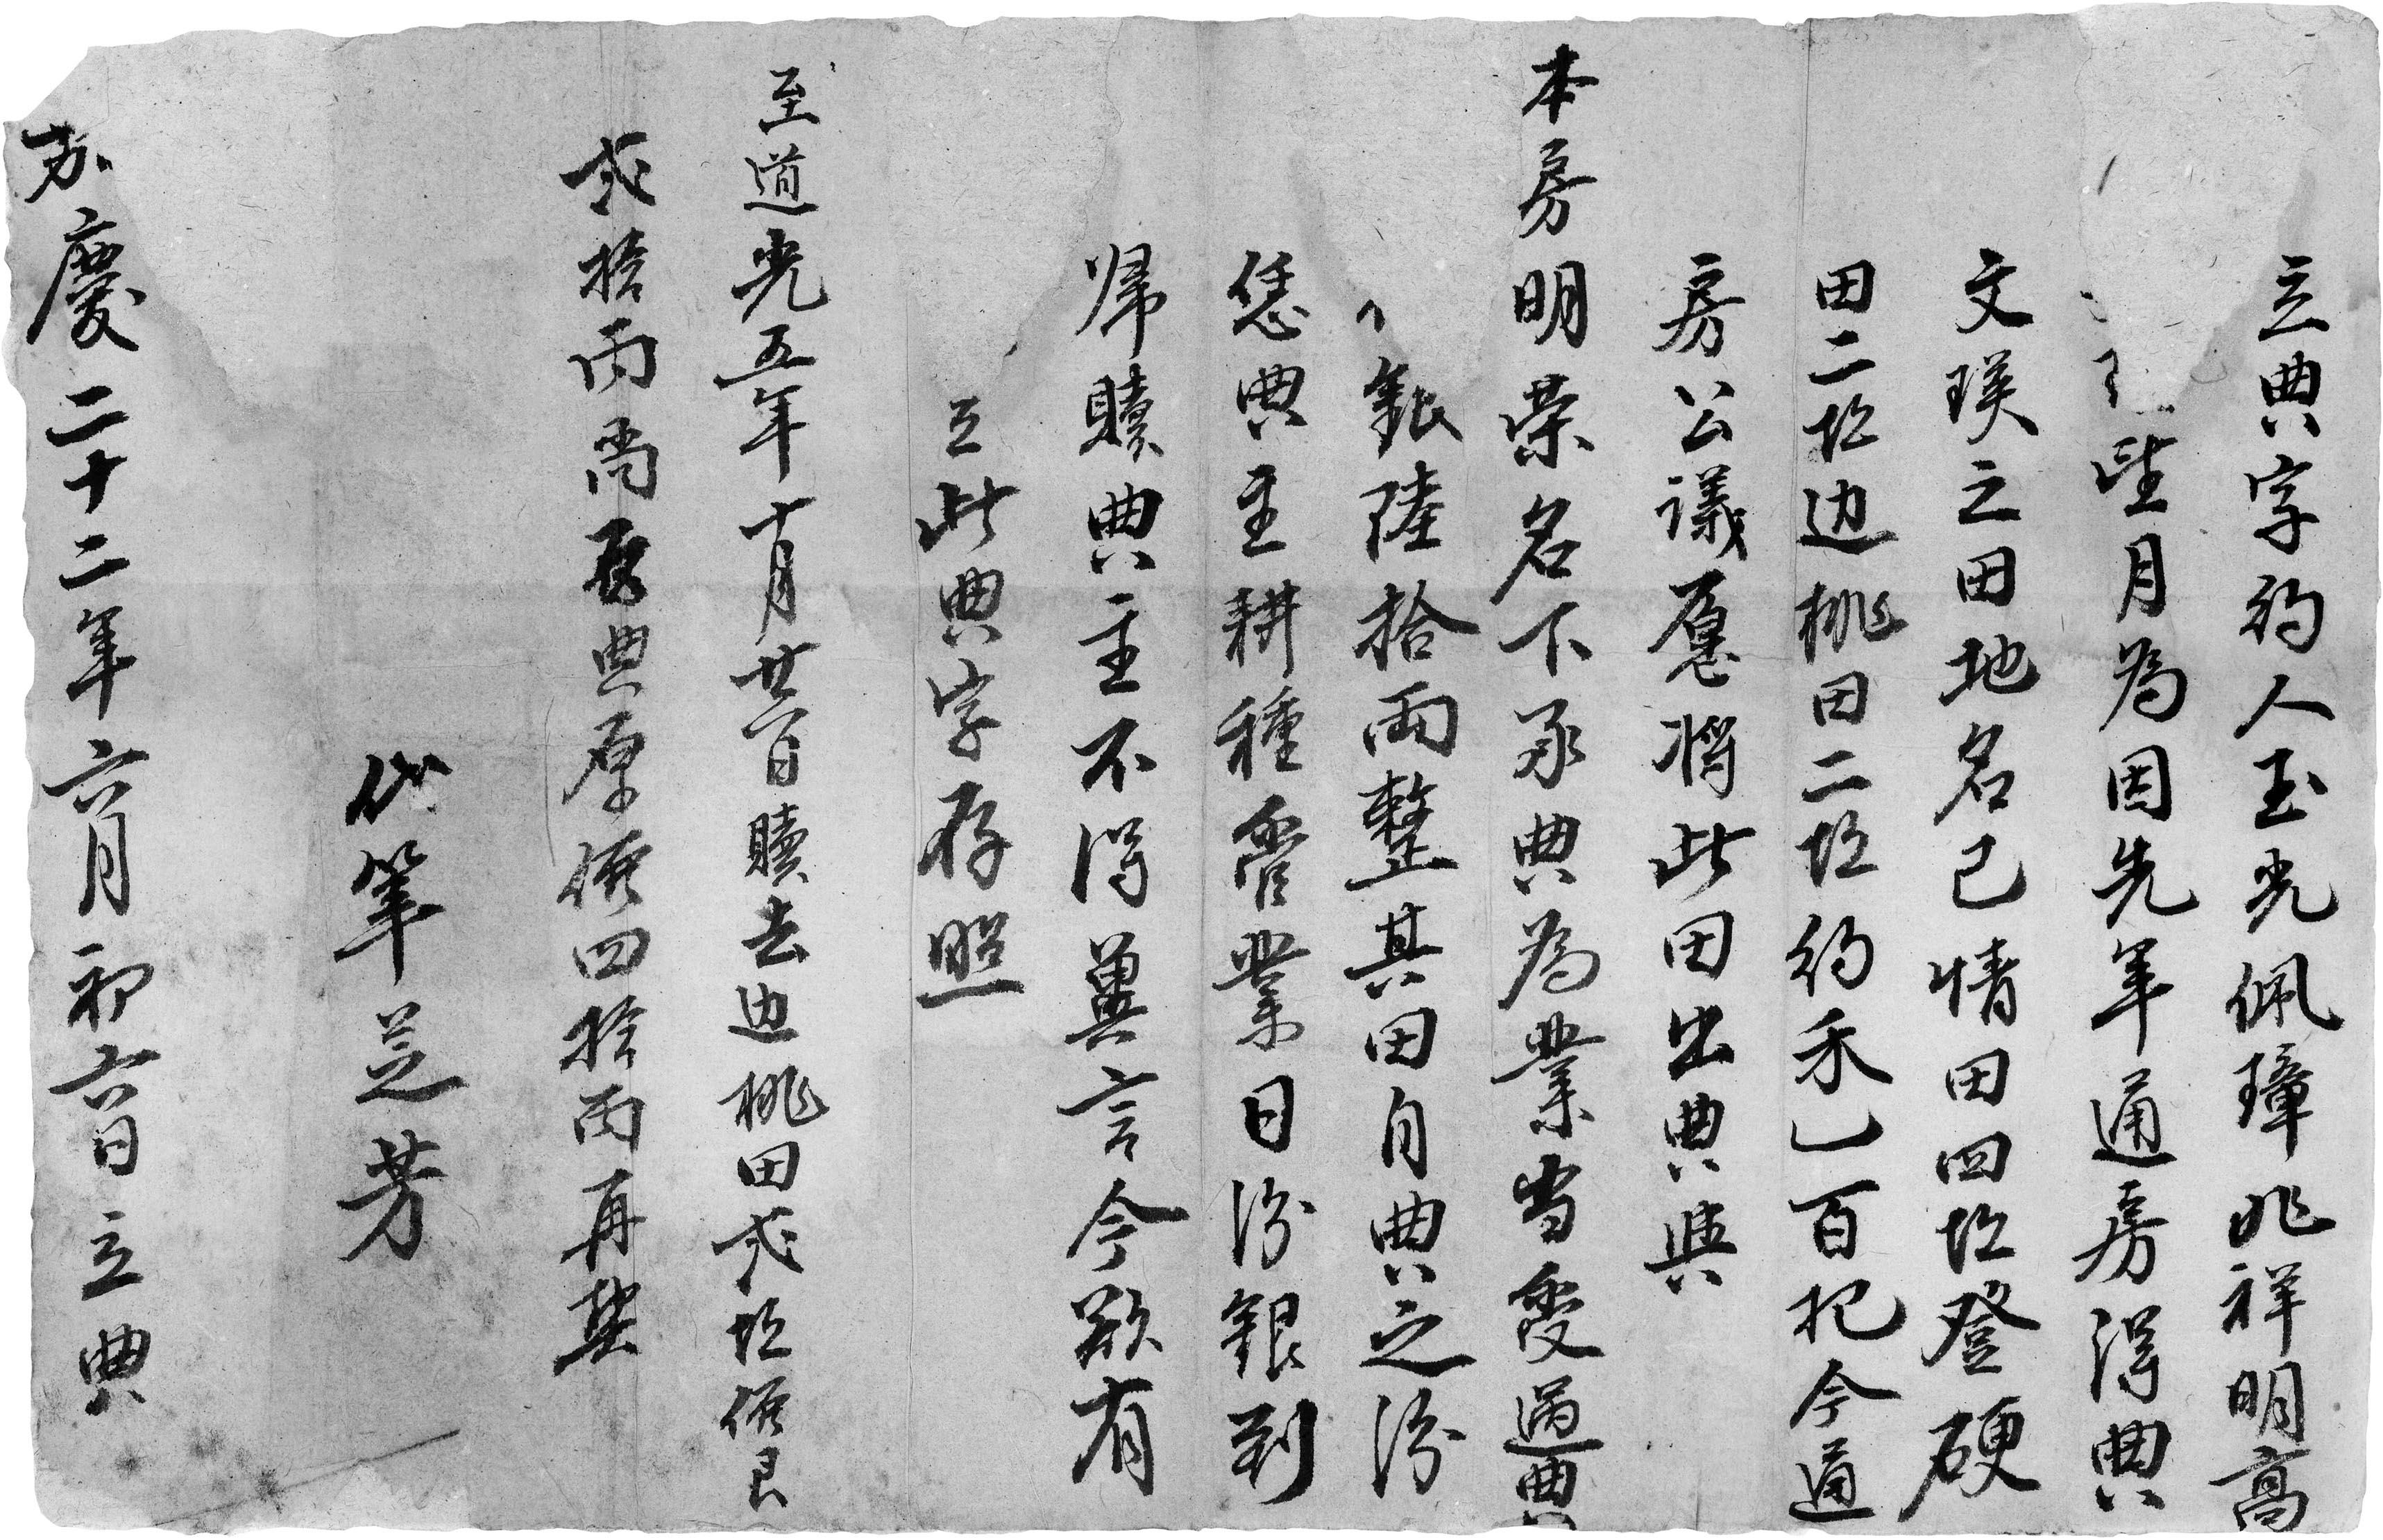 立典字約人玉光佩璋兆祥明高
陞月為因先年通房得典
文瑛之田地名己情田四坵登硬
田二坵边桃田二坵約禾乚百把今通
房公議愿将此田出典與
本房明荣名下承典為業当受過典
銀陸拾両整其田自典之汾
恁典主耕種管業日汾銀到
歸贖典主不得異言今欲有
立此典字存照
至道光五年十月廿一日贖去边桃田弍坵價艮
弍拾両尚存典原價四拾両再契
代筆芝芳
嘉慶二十二年六月初六日立典